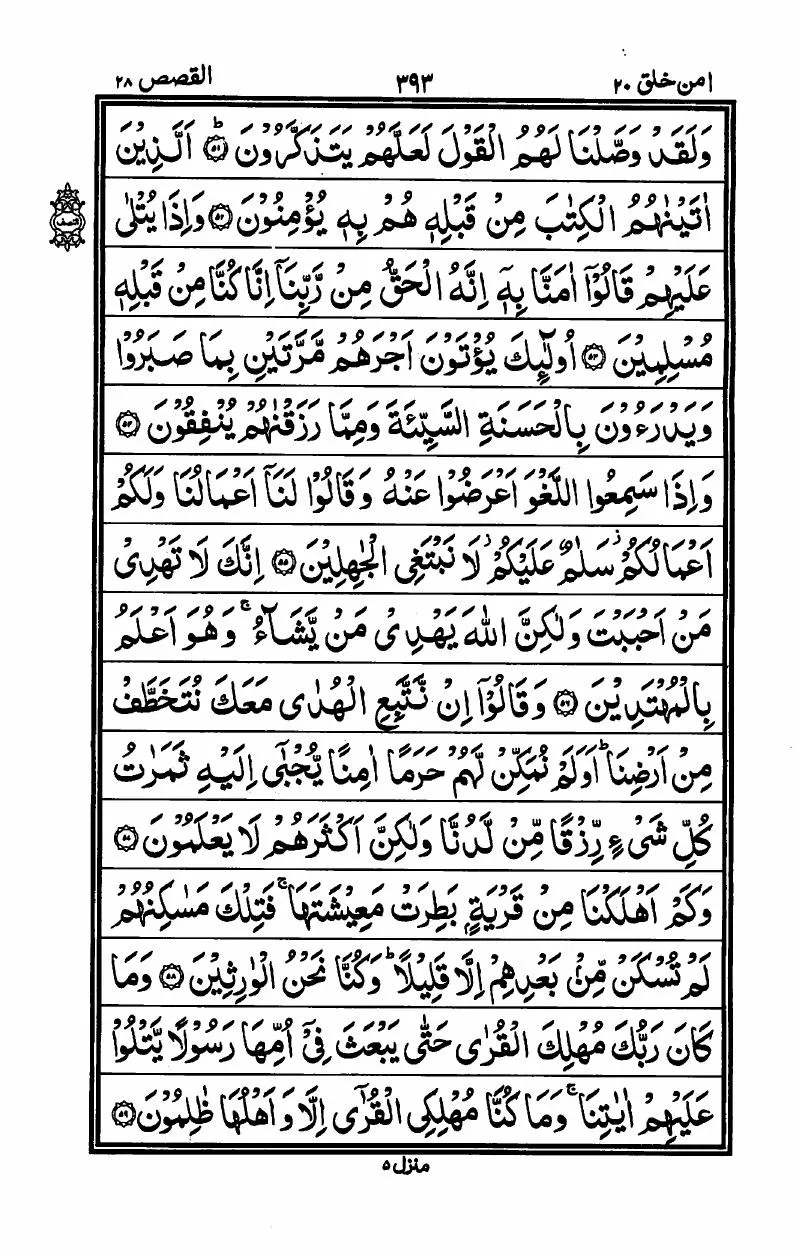 امن خلق ٢٠
٣٩٣
القصص ٢٨
وَلَقَدۡ وَصَّلۡنَا لَهُمُ الۡقَوۡلَ لَعَلَّهُمۡ يَتَذَكَّرُوۡنَ ؕ‏ ﴿۵۱﴾ اَلَّذِيۡنَ
اٰتَيۡنٰهُمُ الۡكِتٰبَ مِنۡ قَبۡلِهٖ هُمۡ بِهٖ يُؤۡمِنُوۡنَ ﴿۵۲﴾ وَاِذَا يُتۡلٰى
عَلَيۡهِمۡ قَالُوۡۤا اٰمَنَّا بِهٖۤ اِنَّهُ الۡحَـقُّ مِنۡ رَّبِّنَاۤ اِنَّا كُنَّا مِنۡ قَبۡلِهٖ
مُسۡلِمِيۡنَ ﴿۵۳﴾ اُولٰٓٮِٕكَ يُؤۡتَوۡنَ اَجۡرَهُمۡ مَّرَّتَيۡنِ بِمَا صَبَرُوۡا
وَيَدۡرَءُوۡنَ بِالۡحَسَنَةِ السَّيِّئَةَ وَمِمَّا رَزَقۡنٰهُمۡ يُنۡفِقُوۡنَ ﴿۵۴﴾
وَاِذَا سَمِعُوا اللَّغۡوَ اَعۡرَضُوۡا عَنۡهُ وَقَالُوۡا لَنَاۤ اَعۡمَالُنَا وَلَـكُمۡ
اَعۡمَالُـكُمۡ سَلٰمٌ عَلَيۡكُمۡ لَا نَبۡتَغِى الۡجٰهِلِيۡنَ ﴿۵۵﴾ اِنَّكَ لَا تَهۡدِىۡ
مَنۡ اَحۡبَبۡتَ وَلٰـكِنَّ اللّٰهَ يَهۡدِىۡ مَنۡ يَّشَآءُ ۚ وَهُوَ اَعۡلَمُ
بِالۡمُهۡتَدِيۡنَ ﴿۵۶﴾ وَقَالُوۡۤا اِنۡ نَّـتَّبِعِ الۡهُدٰى مَعَكَ نُـتَخَطَّفۡ
مِنۡ اَرۡضِنَا ؕ اَوَلَمۡ نُمَكِّنۡ لَّهُمۡ حَرَمًا اٰمِنًا يُّجۡبٰٓى اِلَيۡهِ ثَمَرٰتُ
كُلِّ شَىۡءٍ رِّزۡقًا مِّنۡ لَّدُنَّا وَلٰـكِنَّ اَكۡثَرَهُمۡ لَا يَعۡلَمُوۡنَ ﴿۵۷﴾
وَكَمۡ اَهۡلَـكۡنَا مِنۡ قَرۡيَةٍۢ بَطِرَتۡ مَعِيۡشَتَهَا ۚ فَتِلۡكَ مَسٰكِنُهُمۡ
لَمۡ تُسۡكَنۡ مِّنۡۢ بَعۡدِهِمۡ اِلَّا قَلِيۡلًا ؕ وَكُنَّا نَحۡنُ الۡوٰرِثِيۡنَ ﴿۵۸﴾ وَمَا
كَانَ رَبُّكَ مُهۡلِكَ الۡقُرٰى حَتّٰى يَبۡعَثَ فِىۡۤ اُمِّهَا رَسُوۡلًا يَّتۡلُوۡا
عَلَيۡهِمۡ اٰيٰتِنَا ۚ وَمَا كُنَّا مُهۡلِكِى الۡقُرٰٓى اِلَّا وَاَهۡلُهَا ظٰلِمُوۡنَ ﴿۵۹﴾
منزل ٥